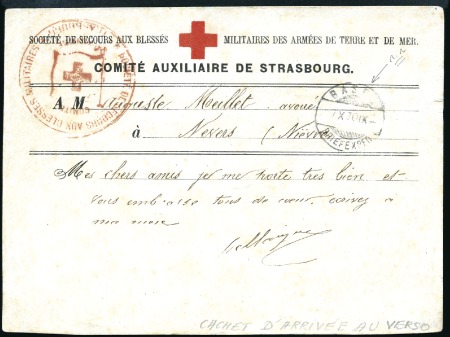 SOCIÉTÉ DE SECOURS AUX BLESSÉS MILITAIRES DES ARMÉES DE TERRE ET DE MER.
COMITÉ AUXILIAIRE DE STRASBOURG.
A M. Auguste Meillet avoué
à Nevers (Nièvre
BASEL
BRIEFEXPED
Mes chers amis je me porte très bien et
vous embrasse tous de cœur, écrivez à
ma mère
CACHET D'ARRIVÉE AU VERSO